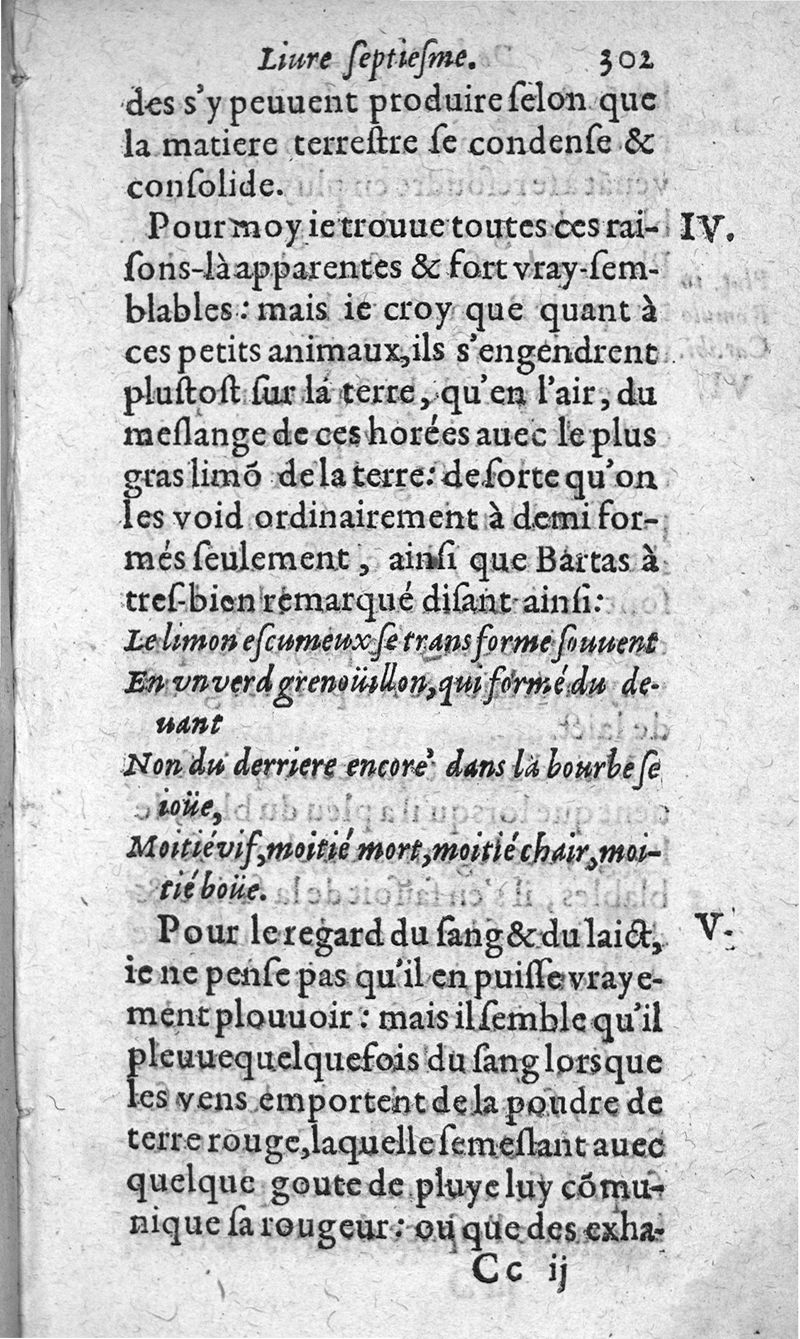 Liure ſeptieſme. 302
des s'y peuuent produire ſelon que
la matiere terreſtre ſe condenſe &
conſolide.
Pour moy ie trouue toutes ces rai- IV.
ſons-là apparentes & fort vray-ſem-
blables : mais ie croy que quant à
ces petits animaux, ils s'engendrent
pluſtoſt ſur la terre, qu'en l'air, du
meſlange de ces horées auec le plus
gras limõ de la terre: de ſorte qu'on
les void ordinairement à demi for-
més ſeulement, ainſi que Bartas à
treſ-bien remarqué diſant ainſi:
Le limon eſcumeux ſe transforme ſouuent
En vn verd grenoüillon, qui formé du de-
uant
Non du derriere encore dans la bourbe ſe
ioüe,
Moitié vif, moitié mort, moitié chair, moi-
tié boüe.
Pour le regard du ſang & du laict, V.
ie ne penſe pas qu'il en puiſſe vraye-
ment plouuoir : mais il ſemble qu'il
pleuue quelquefois du ſang lors que
les vens emportent de la poudre de
terre rouge, laquelle ſe meſlant auec
quelque goute de pluye luy cõmu-
nique ſa rougeur : ou que des exha-
Cc ij